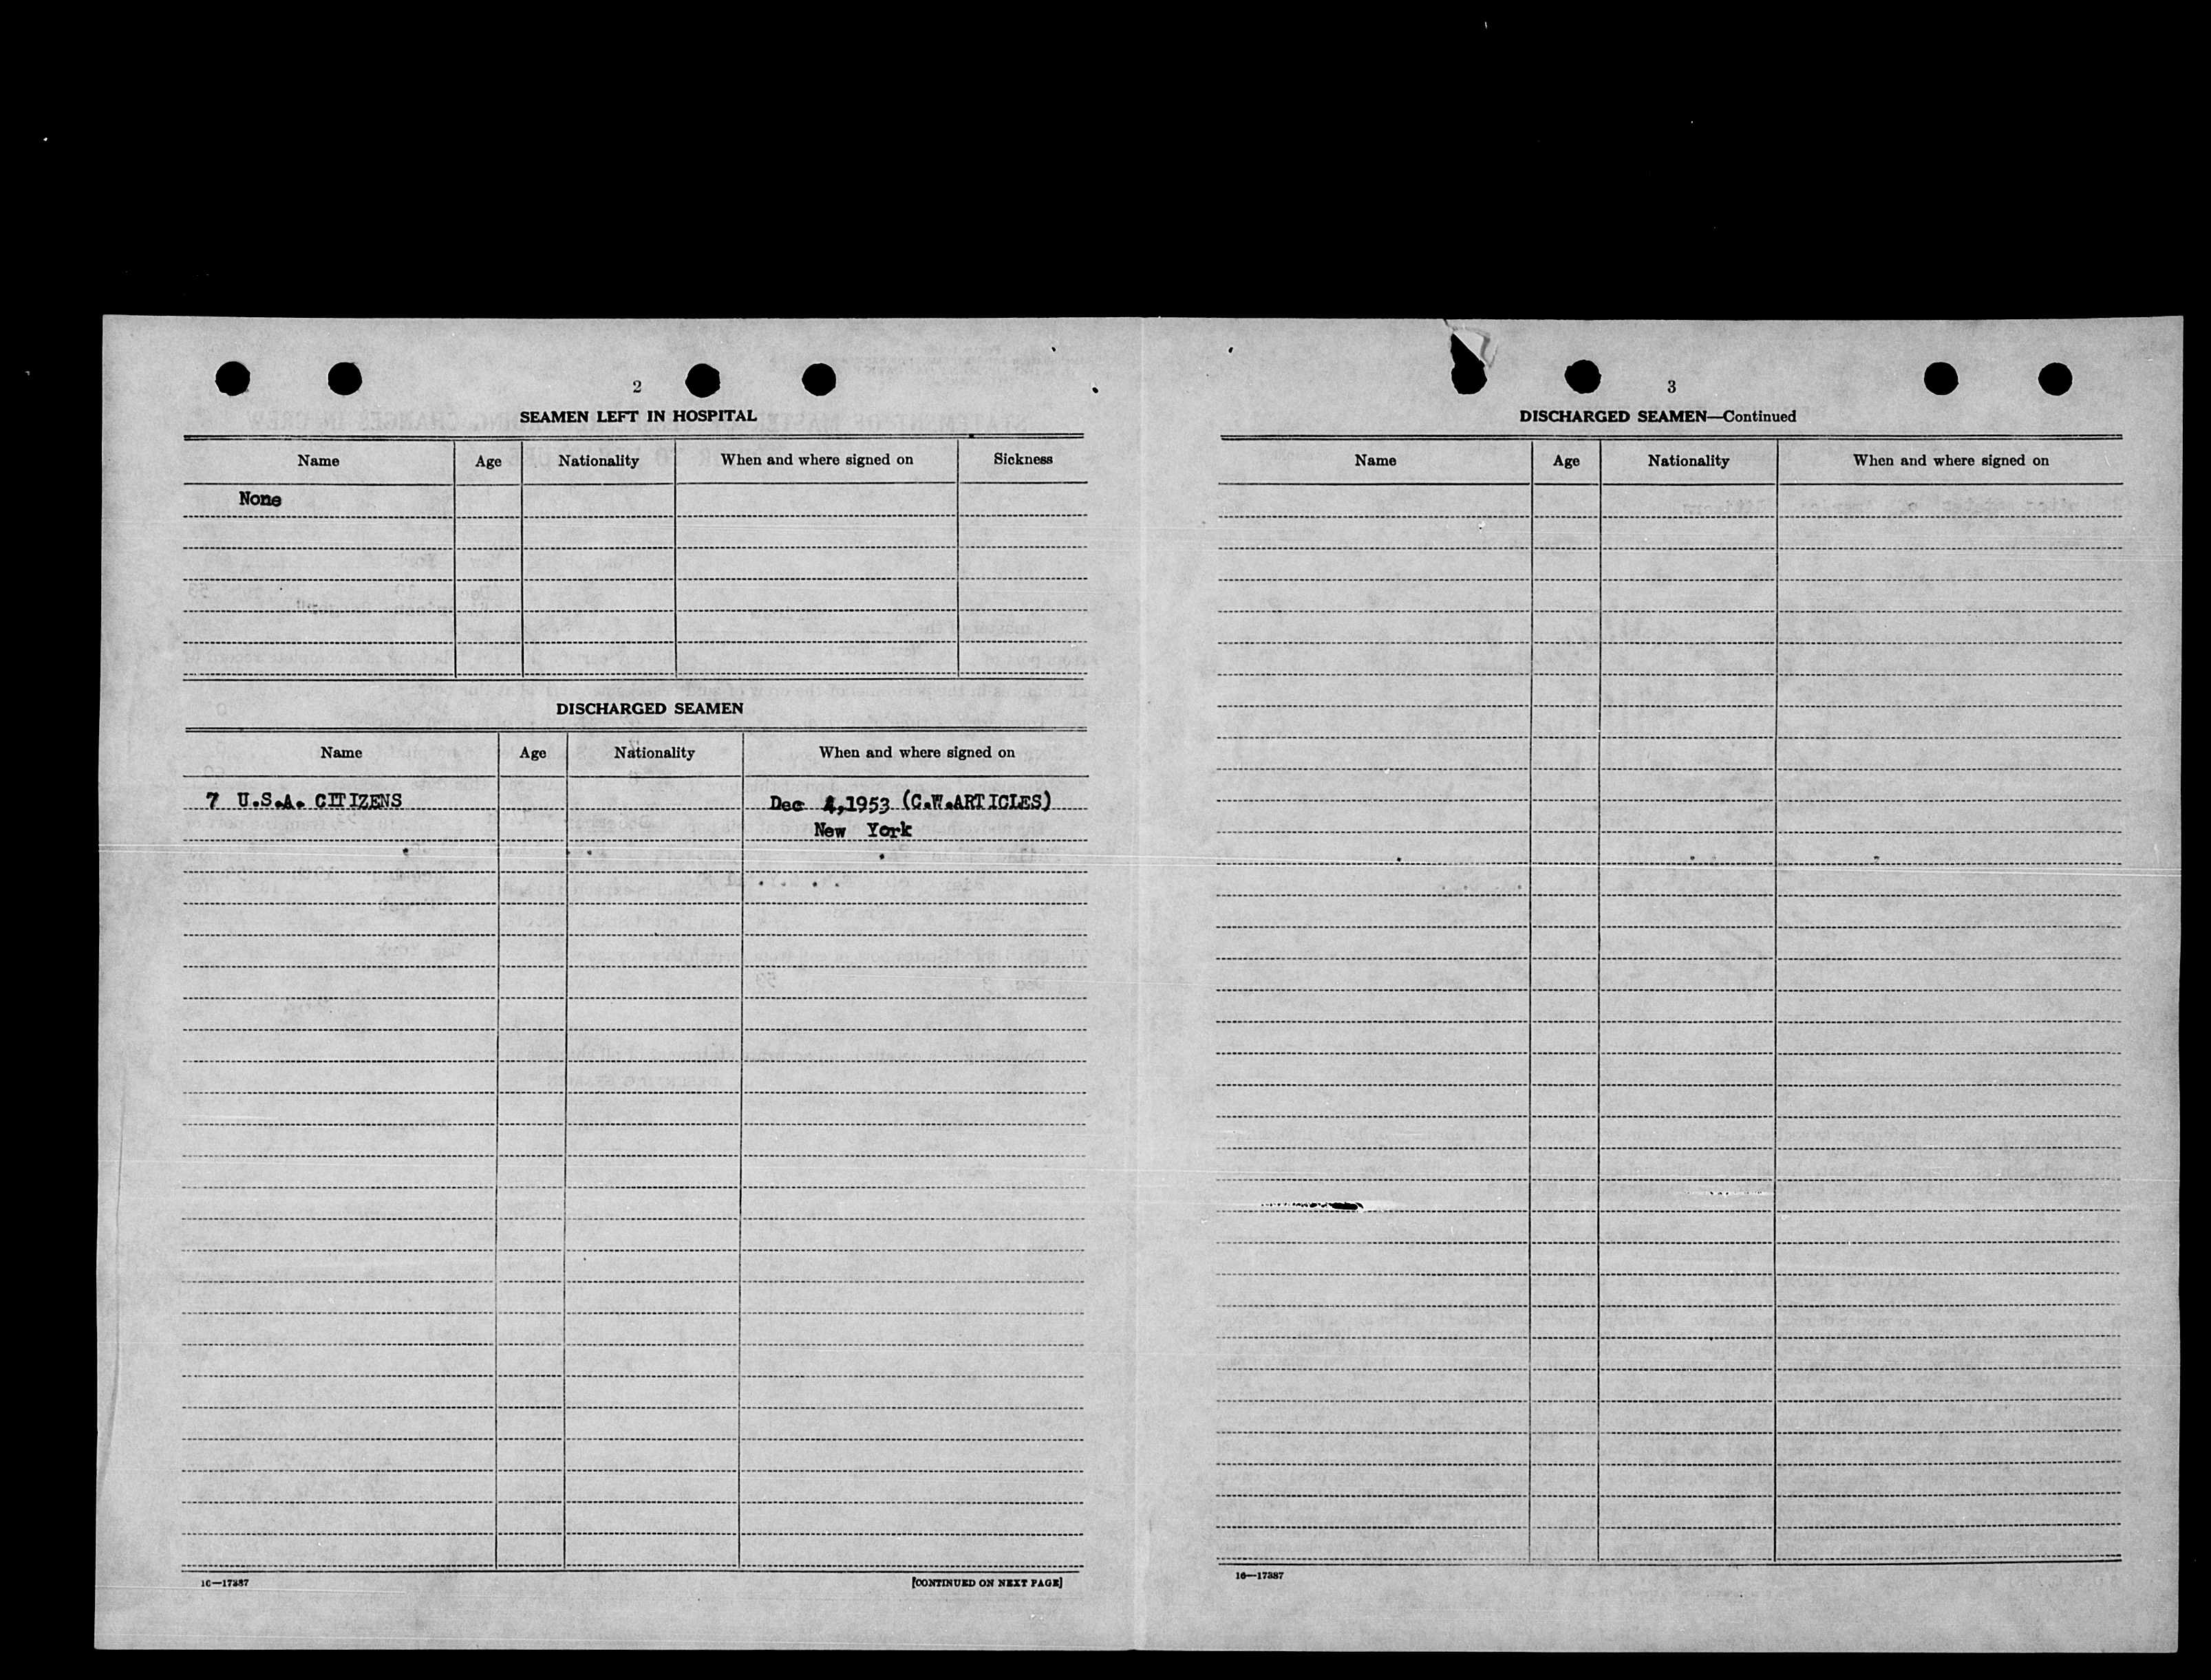 2
SEAMEN LEFT IN HOSPITAL
Name Age Nationality When and where signed on Sickness
None
DISCHARGED SEAMEN
Name Age Nationality When and where signed on
7 U.S.A. CITIZENS Dec 4,1953 (C.W.ARTICLES)
New York
16—17387 [CONTINUED ON NEXT PAGE]
3
DISCHARGED SEAMEN—Continued
Name Age Nationality When and where signed on
16—17387